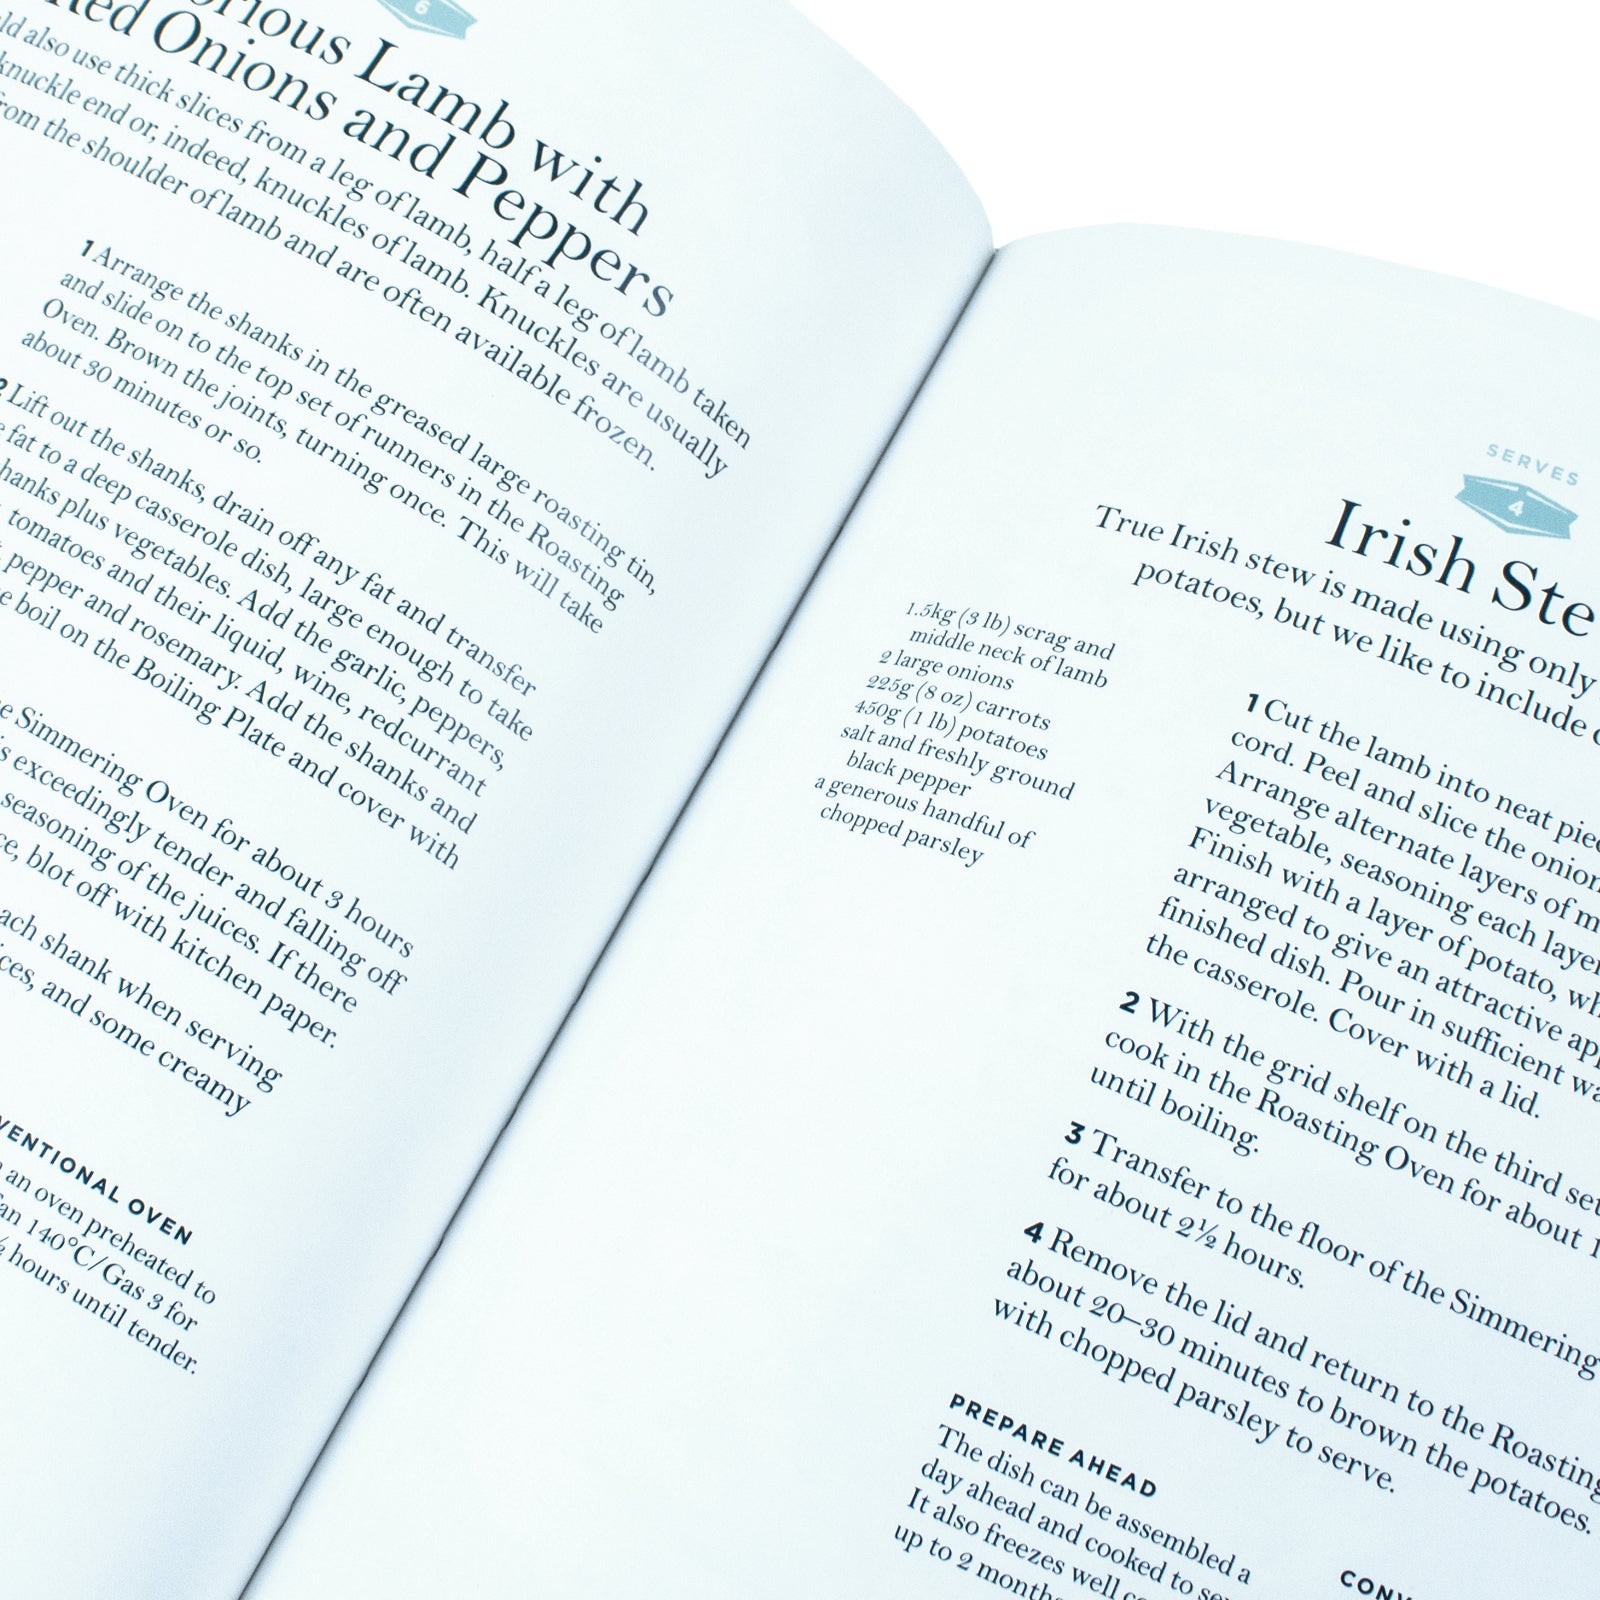 6
Lamb with
Onions and Peppers
also use thick slices from a leg of lamb, half a leg of lamb taken
knuckle end or, indeed, knuckles of lamb. Knuckles are usually
from the shoulder of lamb and are often available frozen.
1 Arrange the shanks in the greased large roasting tin,
and slide on to the top set of runners in the Roasting
Oven. Brown the joints, turning once. This will take
about 30 minutes or so.
2 Lift out the shanks, drain off any fat and transfer
fat to a deep casserole dish, large enough to take
shanks plus vegetables. Add the garlic, peppers,
tomatoes and their liquid, wine, redcurrant
pepper and rosemary. Add the shanks and
boil on the Boiling Plate and cover with
Simmering Oven for about 3 hours
exceedingly tender and falling off
seasoning of the juices. If there
blot off with kitchen paper.
each shank when serving
and some creamy
VENTIONAL OVEN
an oven preheated to
140°C/Gas 3 for
½ hours until tender.
SERVES
4
Irish Ste
True Irish stew is made using only
potatoes, but we like to include
1.5kg (3 lb) scrag and
middle neck of lamb
2 large onions
225g (8 oz) carrots
450g (1 lb) potatoes
salt and freshly ground
black pepper
a generous handful of
chopped parsley
1 Cut the lamb into neat piec
cord. Peel and slice the onion
Arrange alternate layers of m
vegetable, seasoning each layer
Finish with a layer of potato, wh
arranged to give an attractive ap
finished dish. Pour in sufficient wa
the casserole. Cover with a lid.
2 With the grid shelf on the third set
cook in the Roasting Oven for about 1
until boiling.
3 Transfer to the floor of the Simmering
for about 2½ hours.
4 Remove the lid and return to the Roasting
about 20–30 minutes to brown the potatoes.
with chopped parsley to serve.
PREPARE AHEAD
The dish can be assembled a
day ahead and cooked to se
It also freezes well
up to 2 month
CONV